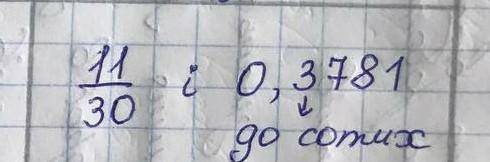 11/30 і 0,3781
до сотих